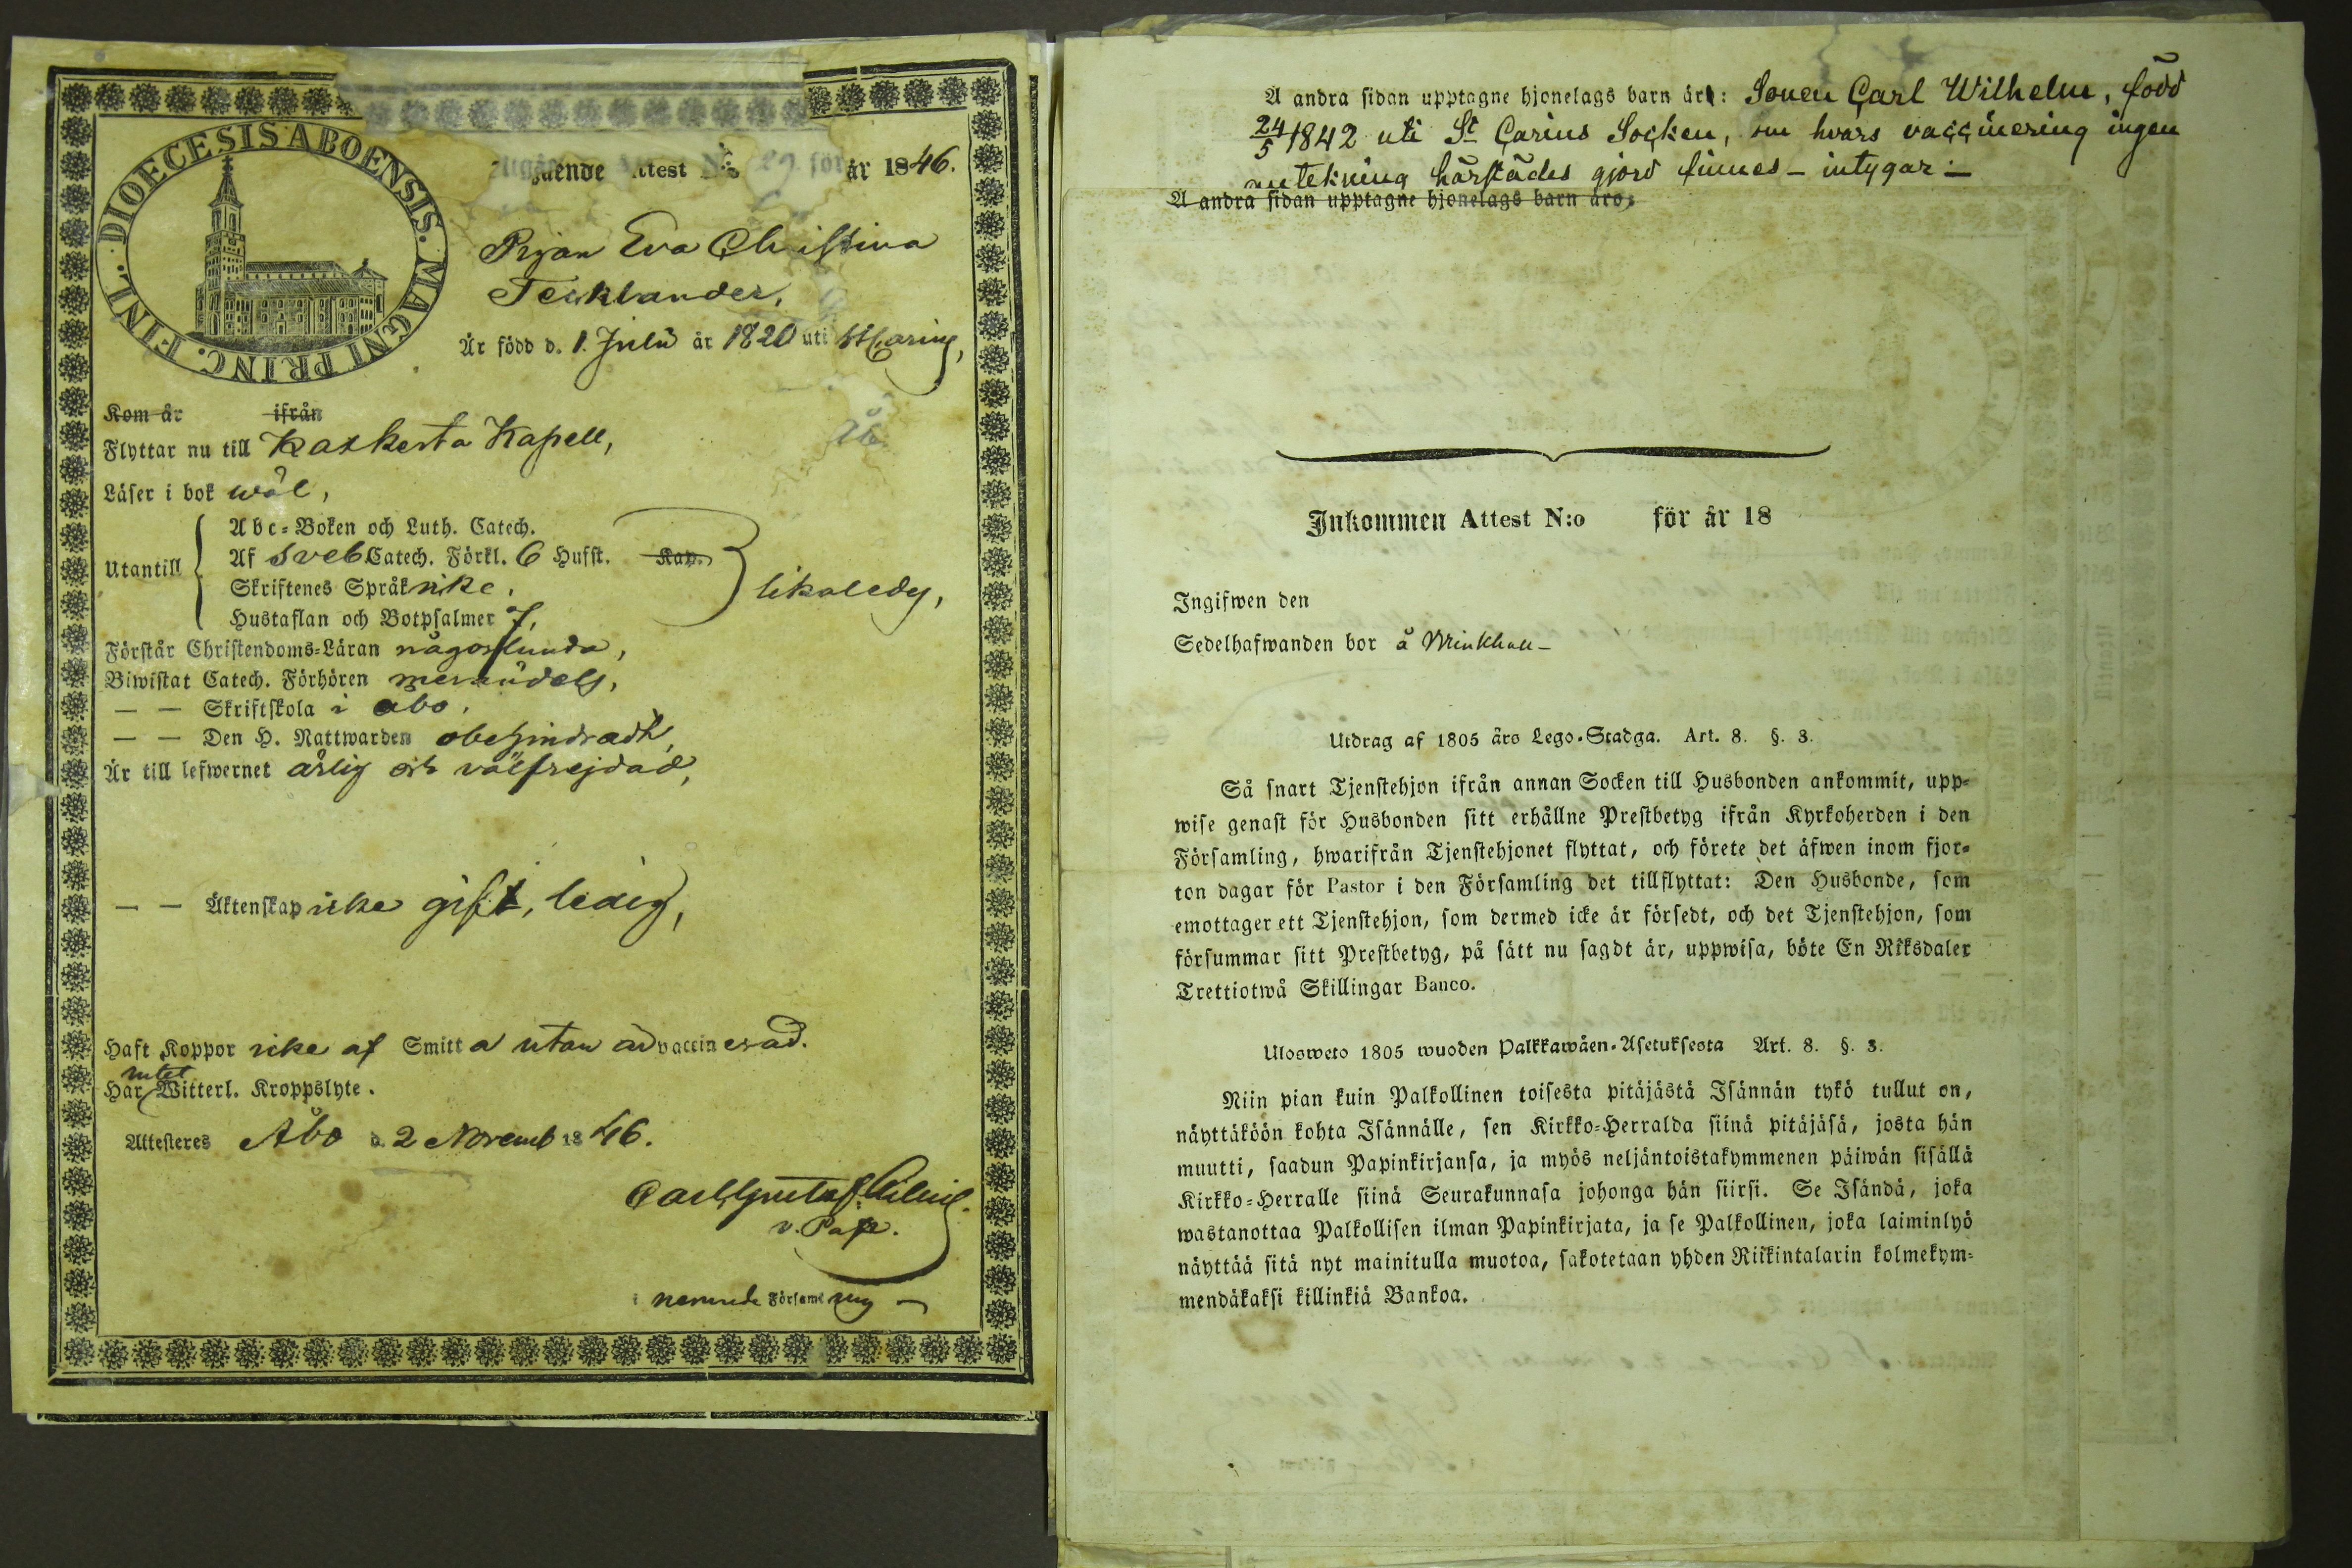 DIOECESIS ABOENSIS. MAGNI PRINC. FINL.
Utgående Attest N:o 29 för år 1846.
Pigan Eva Christina
Tecklander,
Är född d. 1. Julii år 1820 uti St Carins,
Kom år ifrån
Flyttar nu till Kaskerta Kapell,
Läser i bok wäl,
Utantill
Abc-Boken och Luth. Catech.
Af Sveb. Catech. Förkl. 6 Hufst. Kap.
Skriftenes Språk icke,
Hustaflan och Botpsalmer 7,
likaledes,
Förstår Christendoms-Läran någorlunda,
Biwistat Catech. Förhören merändels,
— — Skriftskola i Åbo,
— — Den H. Nattwarden obehindradt,
Är till lefwernet ärlig och välfrejdad,
— — Äktenskap icke gift, ledig,
Haft Koppor icke af Smitta utan är vaccinerad.
intet
Har Witterl. Kroppslyte.
Attesteres Åbo d. 2 Novemb 1846.
Carl Gustaf
v. Past.
i nemnde Församling —
Å andra sidan upptagne hjonelags barn är: Sonen Carl Wilhelm, född
24/5 1842 uti St Carins Socken, om hvars vaccinering ingen
antekning härstädes gjord finnes – intygar:–
Å andra sidan upptagne hjonelags barn äro:
Inkommen Attest N:o för år 18
Ingifwen den
Sedelhafwanden bor å Munkhall –
Utdrag af 1805 års Lego-Stadga. Art. 8. §. 3.
Så snart Tjenstehjon ifrån annan Socken till Husbonden ankommit, upp-
wise genast för Husbonden sitt erhållne Prestbetyg ifrån Kyrkoherden i den
Församling, hwarifrån Tjenstehjonet flyttat, och förete det äfwen inom fjor-
ton dagar för Pastor i den Församling det tillflyttat: Den Husbonde, som
emottager ett Tjenstehjon, som dermed icke är försedt, och det Tjenstehjon, som
försummar sitt Prestbetyg, på sätt nu sagdt är, uppwisa, böte En Riksdaler
Trettiotwå Skillingar Banco.
Ulosweto 1805 wuoden Palkkawäen-Asetuksesta Art. 8. §. 3.
Niin pian kuin Palkollinen toisesta pitäjästä Isännän tykö tullut on,
näyttäköön kohta Isännälle, sen Kirkko-Herralda siinä pitäjäsä, josta hän
muutti, saadun Papinkirjansa, ja myös neljäntoistakymmenen päiwän sisällä
Kirkko-Herralle siinä Seurakunnasa johonga hän siirsi. Se Isändä, joka
wastanottaa Palkollisen ilman Papinkirjata, ja se Palkollinen, joka laiminlyö
näyttää sitä nyt mainitulla muotoa, sakotetaan yhden Riikintalarin kolmekym-
mendäkaksi killinkiä Bankoa.